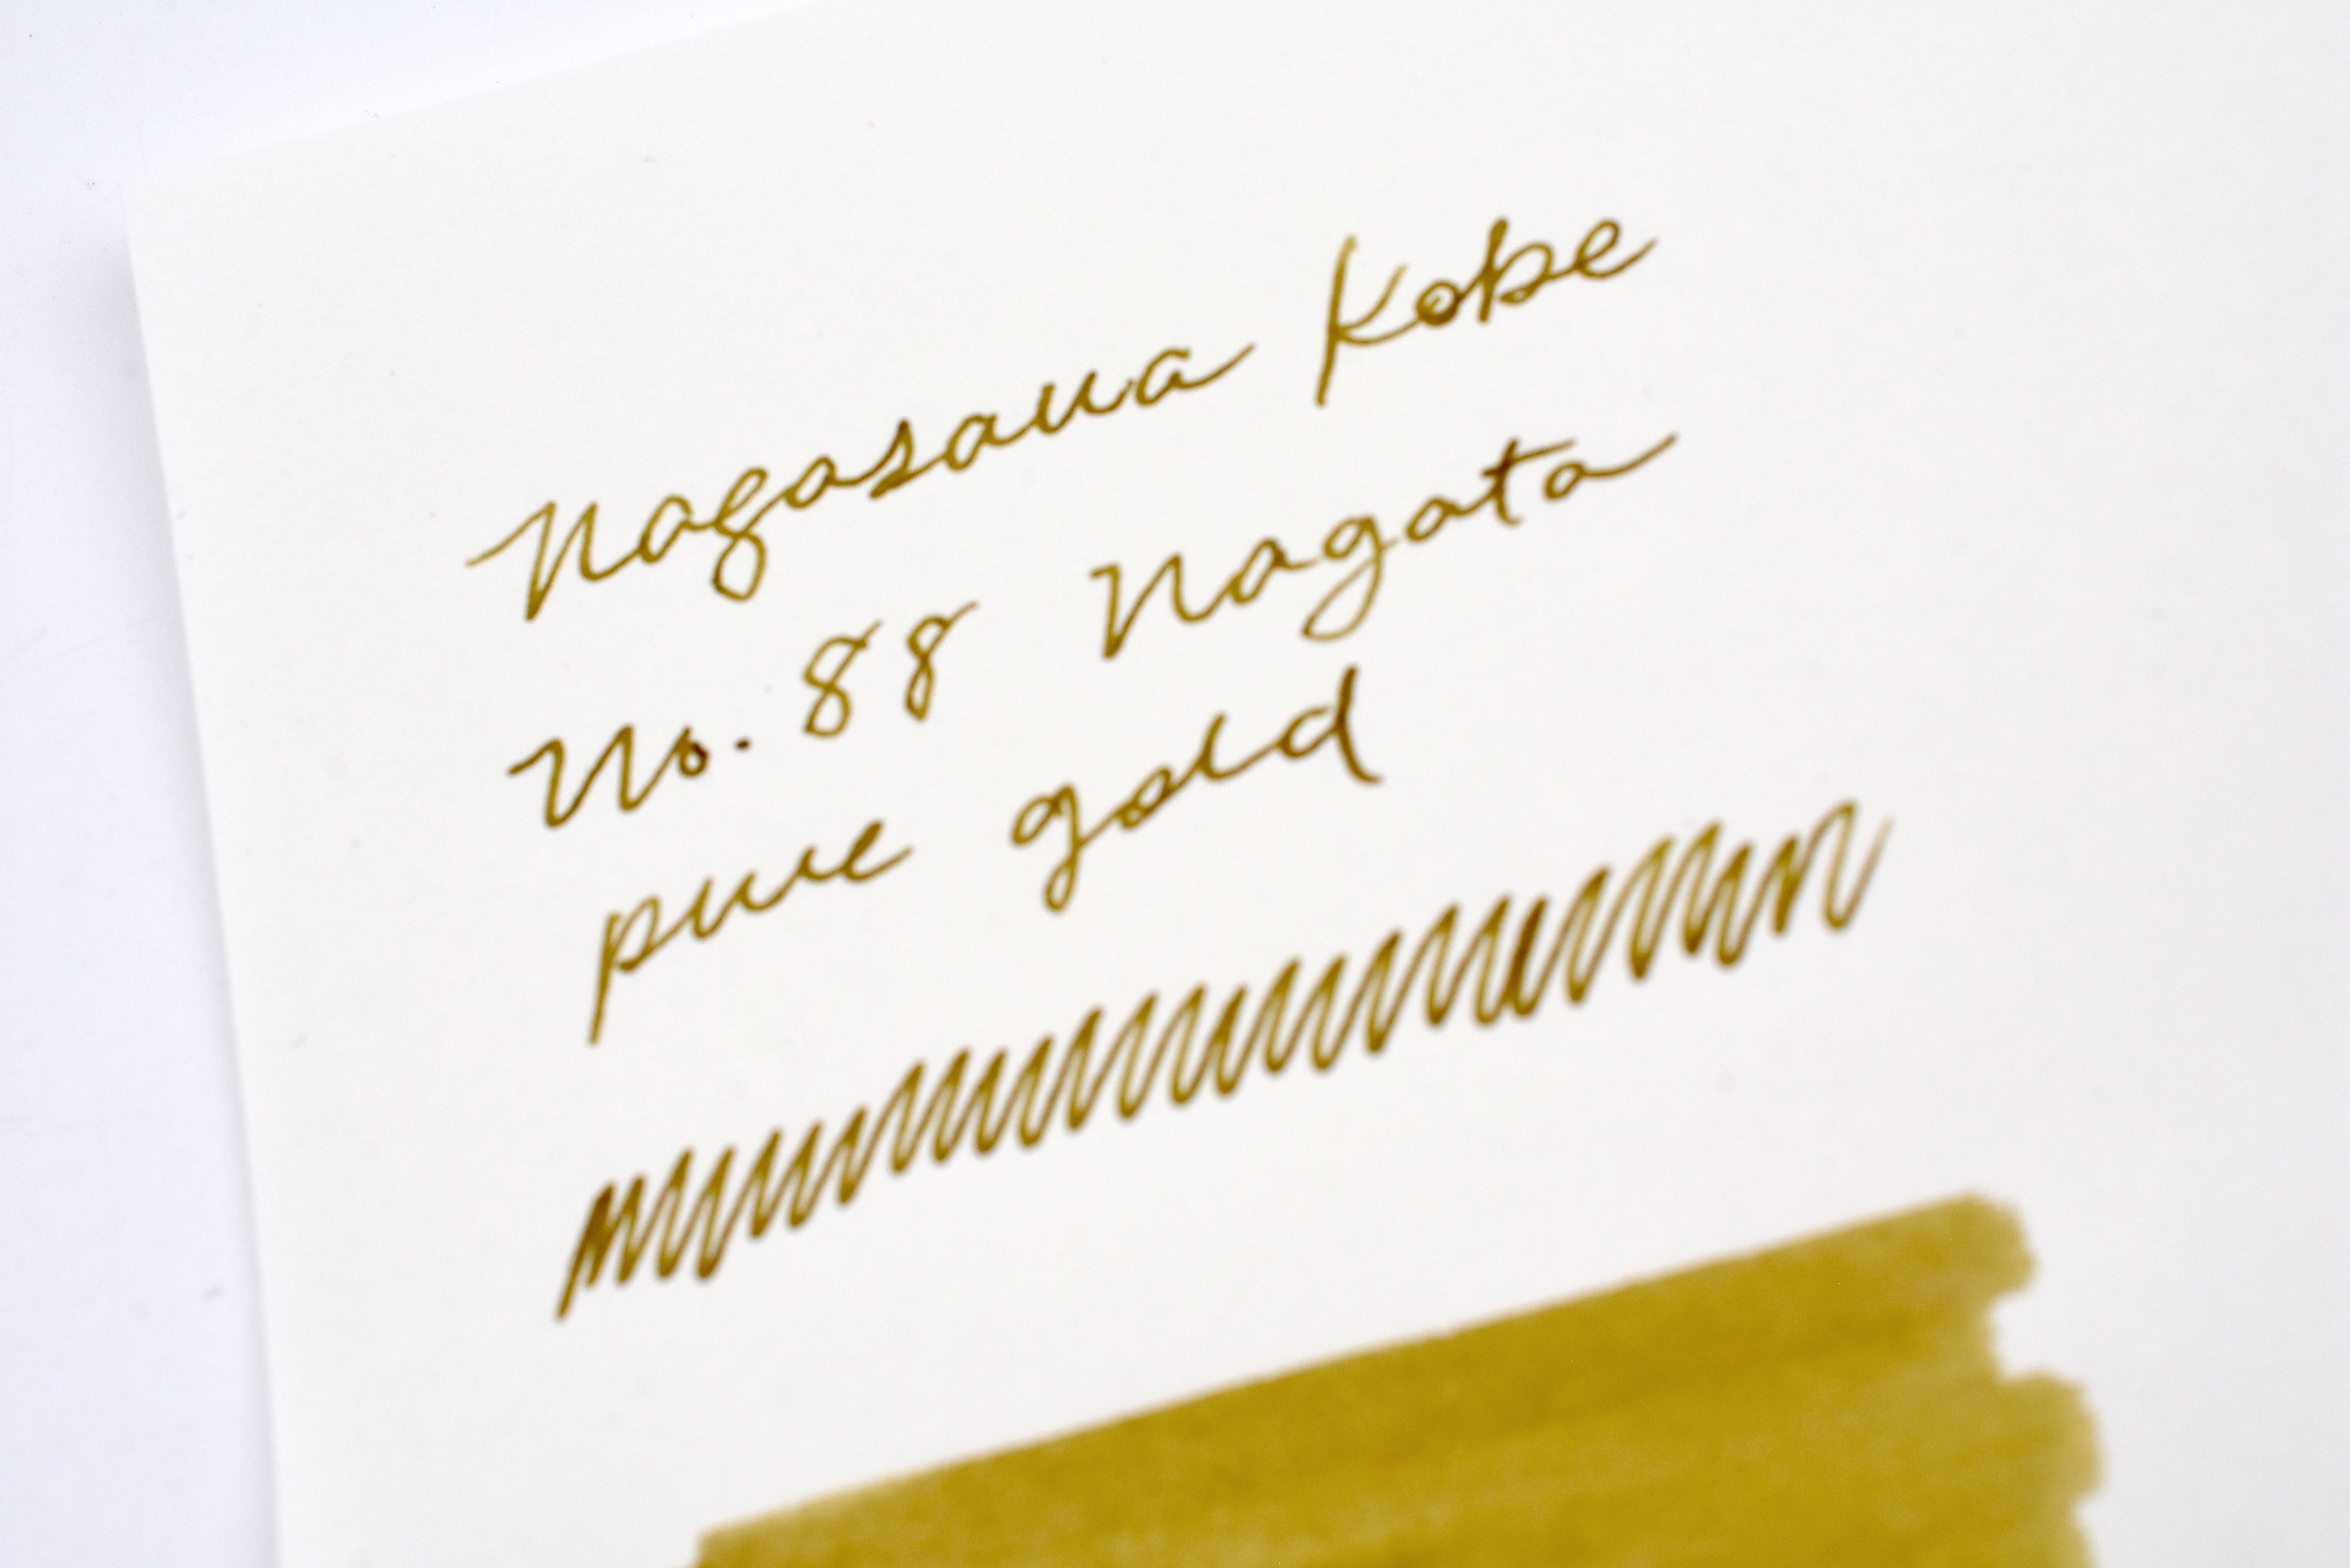 Nagasawa Kobe
No. 88 Nagata
pure gold